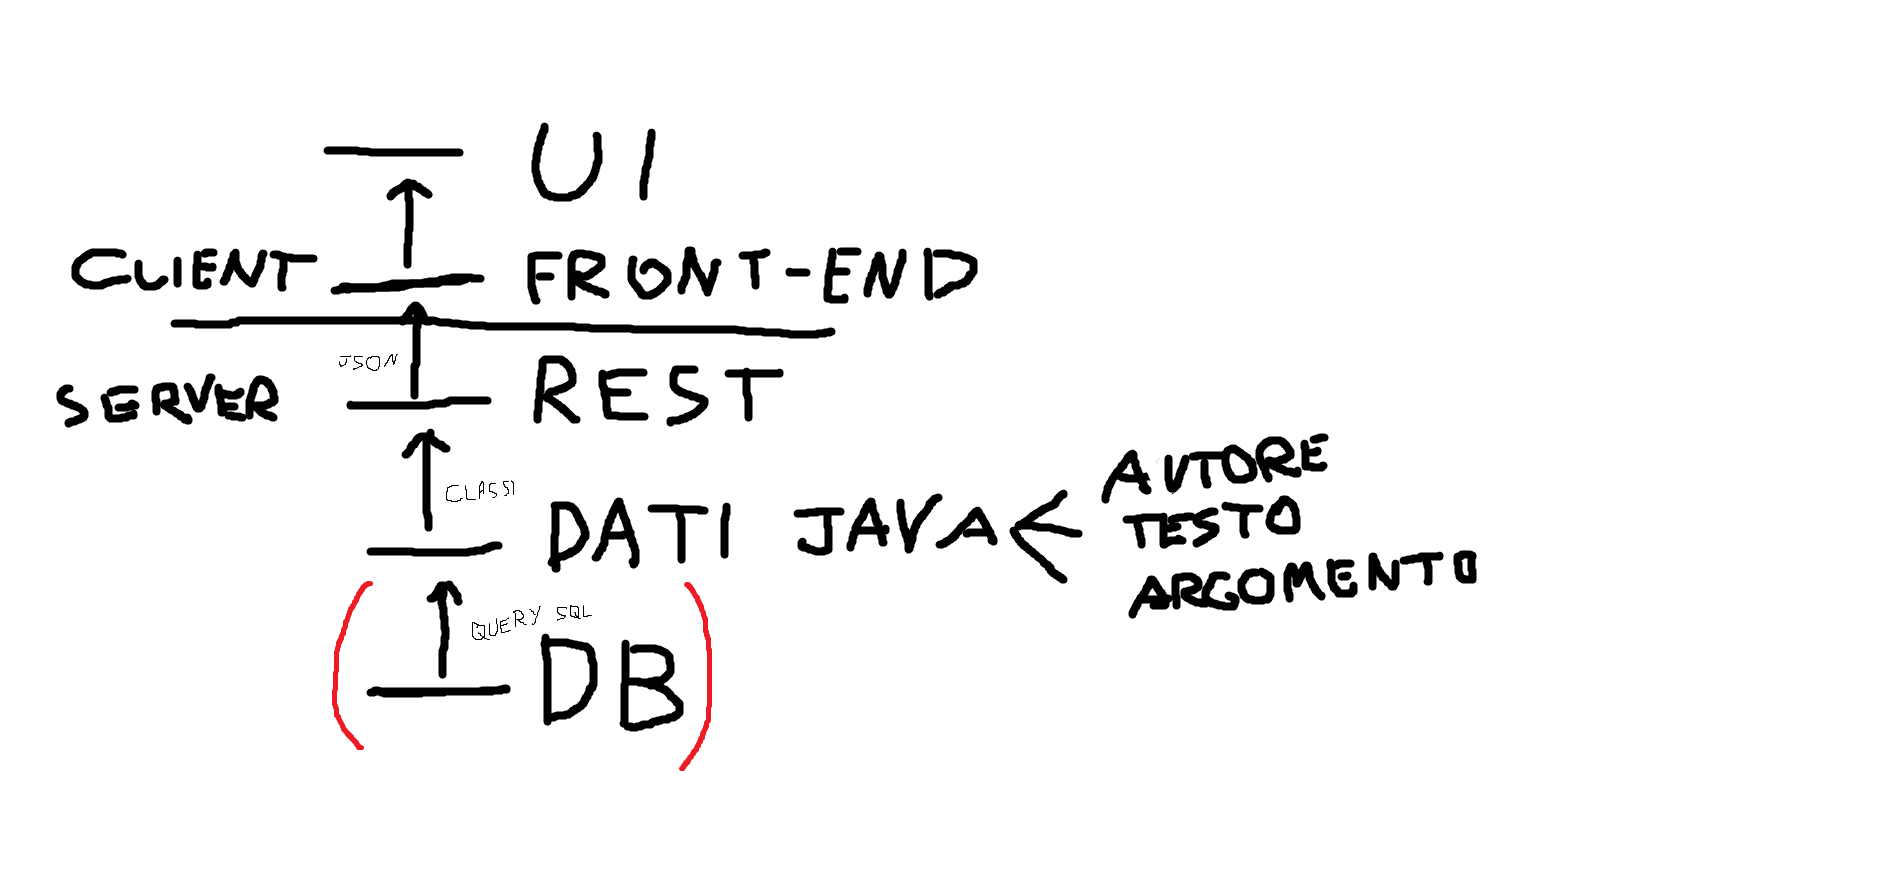 UI
CLIENT FRONT-END
JSON
SERVER REST
CLASSI
DATI JAVA
AUTORE
TESTO
ARGOMENTO
QUERY SQL
DB